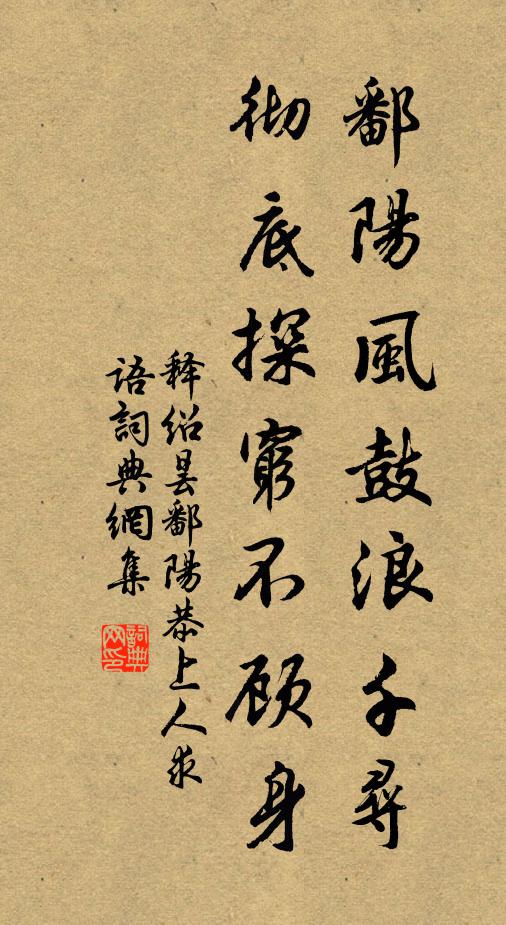 鄱陽風鼓浪千尋
彻底探窮不顾身
释绍昙鄱陽恭上人求
语詞典網集
詞典
网印